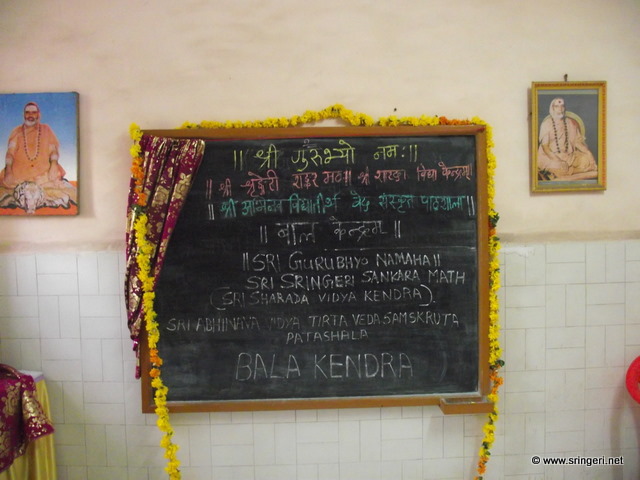 ॥ श्री गुरुभ्यो नमः॥
॥ श्री श्रृङ्गेरी शङ्कर मठ॥ श्री शारदा विद्या केन्द्रम्॥
॥ श्री अभिनव विद्यातीर्थ वेद संस्कृत पाठशाला॥
॥ बाल केन्द्रम् ॥
॥SRI GURUBHYO NAMAHA॥
SRI SRINGERI SANKARA MATH
(SRI SHARADA VIDYA KENDRA)
SRI ABHINAVA VIDYA TIRTA VEDA SAMSKRUTA
PATASHALA
BALA KENDRA
© www.sringeri.net